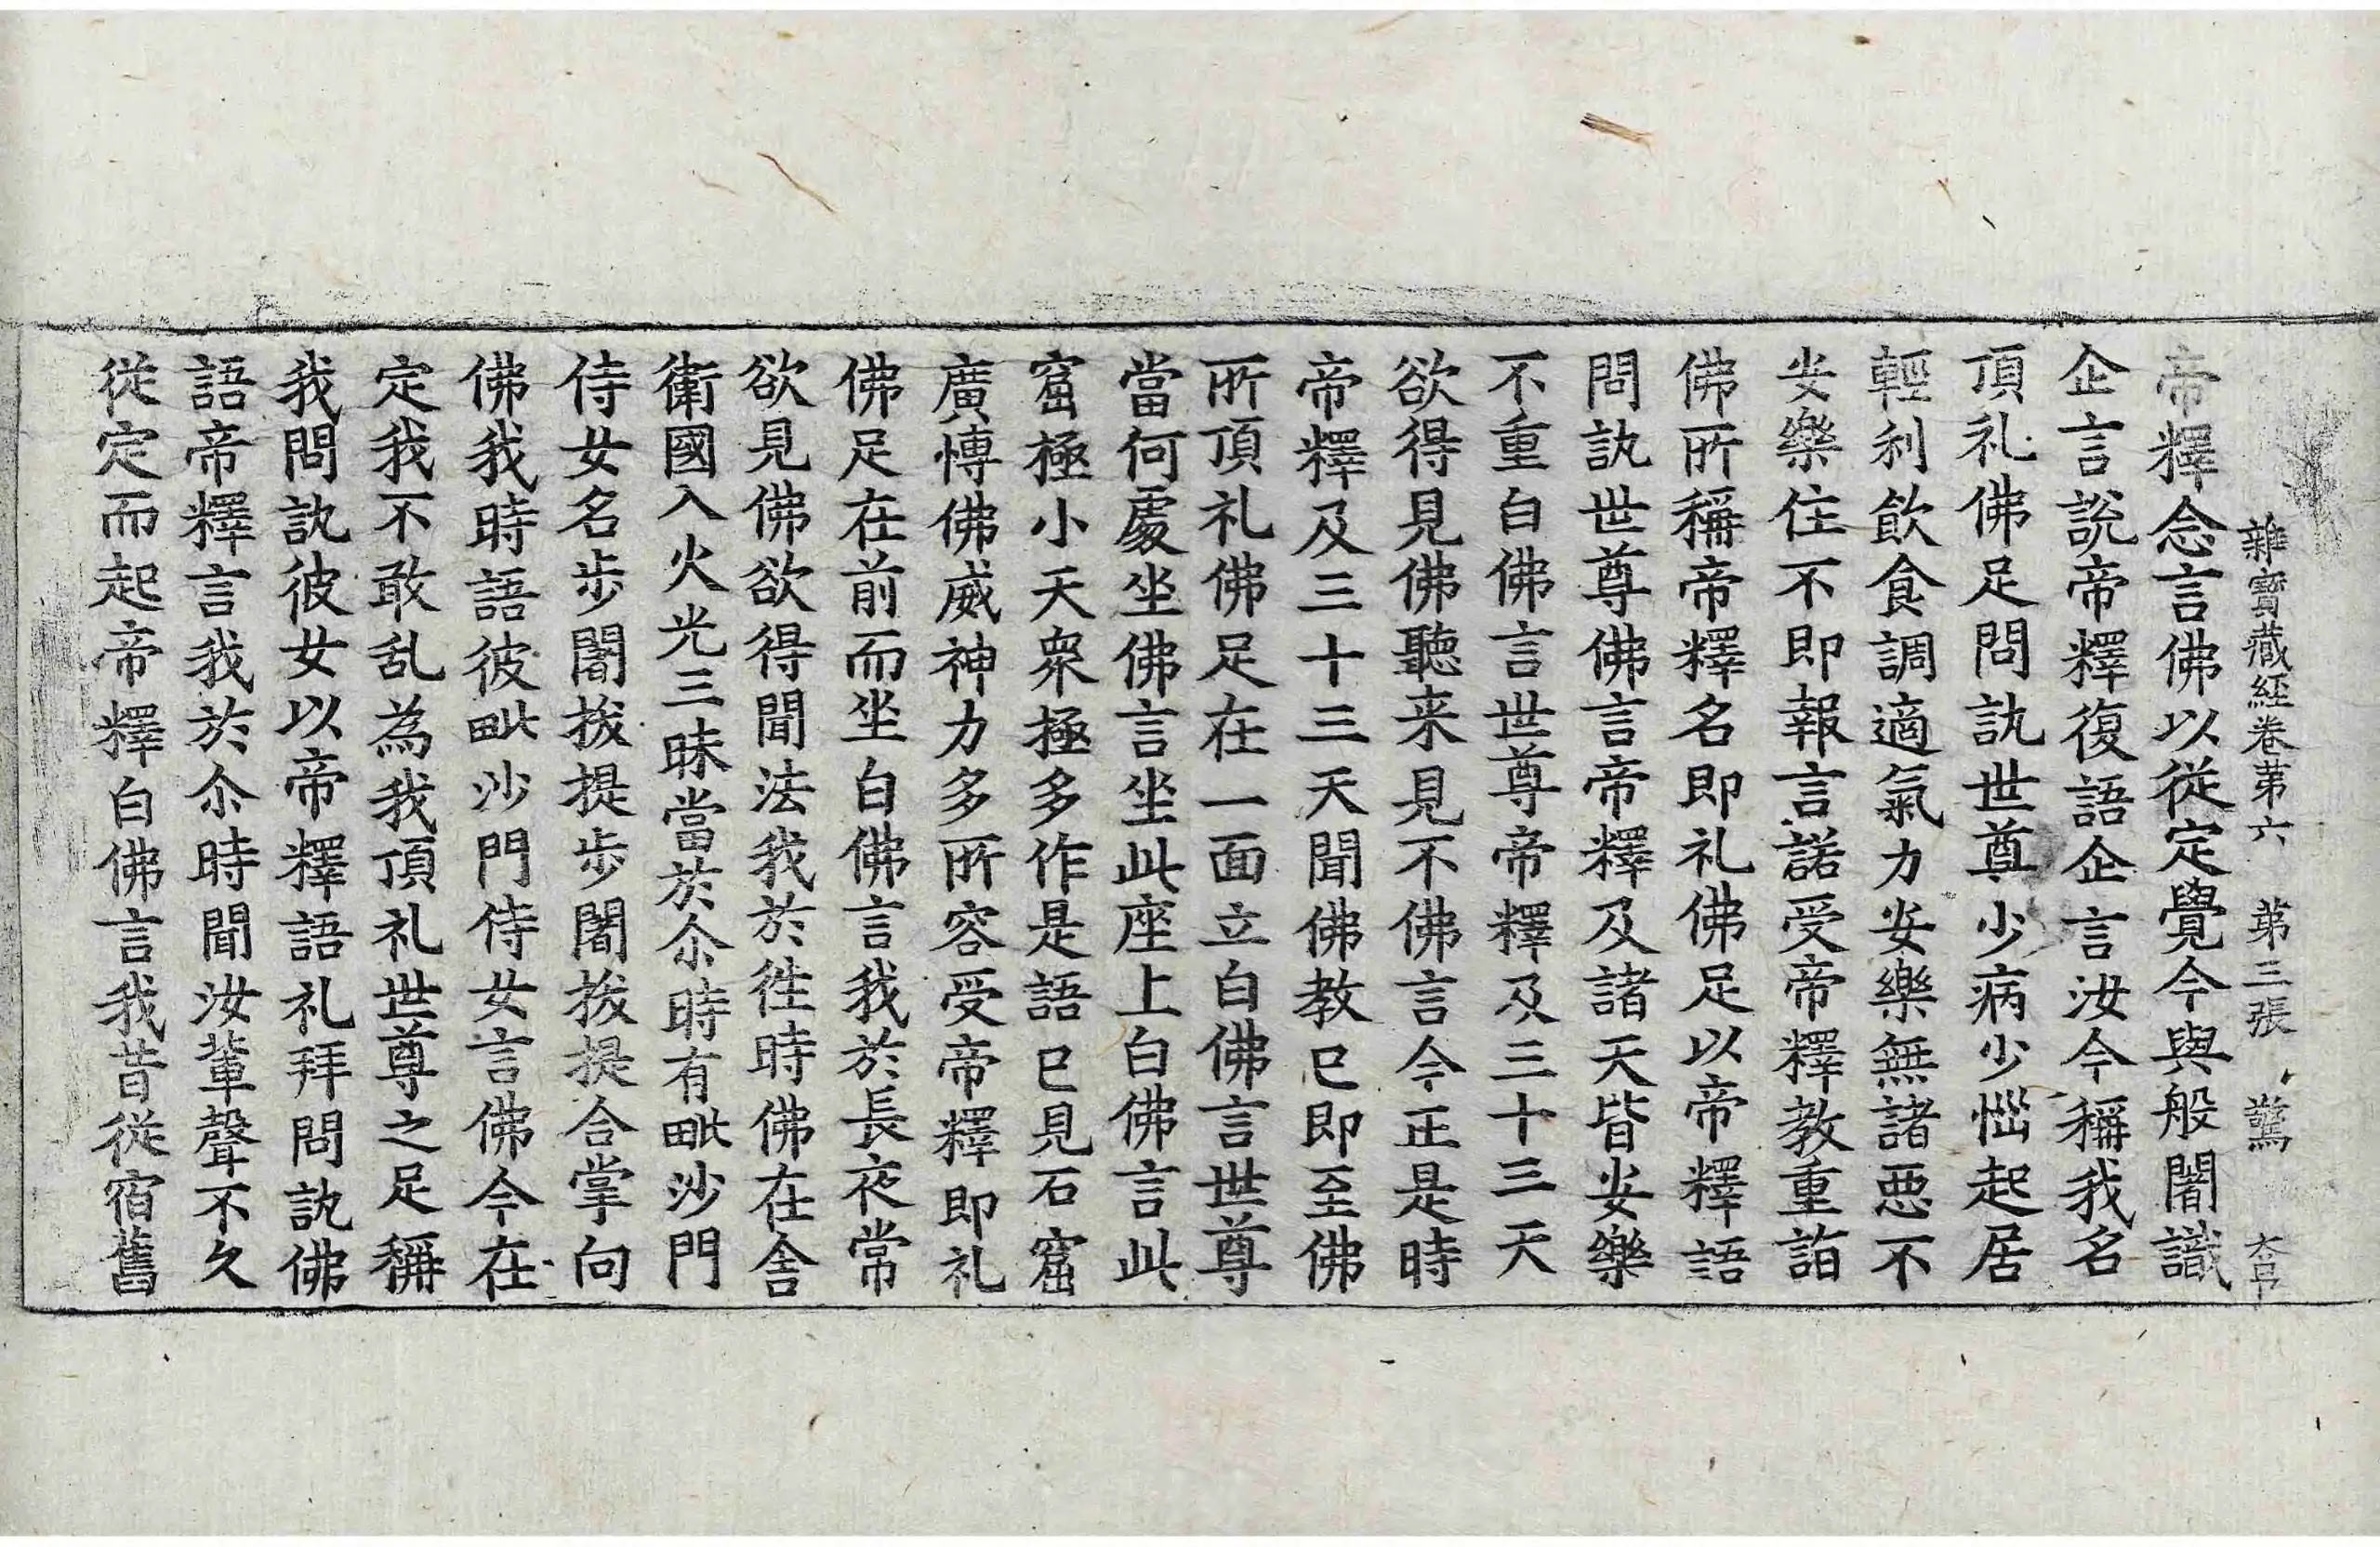 雜寶藏經卷第六 第三張 驚
帝釋念言佛以從定覺今與般闍識
企言說帝釋復語企言汝今稱我名
頂礼佛足問訊世尊少病少惱起居
輕利飲食調適氣力安樂無諸惡不
安樂住不即報言諾受帝釋教重詣
佛所稱帝釋名即礼佛足以帝釋語
問訊世尊佛言帝釋及諸天皆安樂
不重白佛言世尊帝釋及三十三天
欲得見佛聽来見不佛言今正是時
帝釋及三十三天聞佛教已即至佛
所頂礼佛足在一面立白佛言世尊
當何處坐佛言坐此座上白佛言此
窟極小天衆極多作是語已見石窟
廣愽佛威神力多所容受帝釋即礼
佛足在前而坐白佛言我於長夜常
欲見佛欲得聞法我於徃時佛在舍
衛國入火光三昧當於尒時有毗沙門
侍女名步闍拔提步闍拔提合掌向
佛我時語彼毗沙門侍女言佛今在
定我不敢乱為我頂礼世尊之足稱
我問訊彼女以帝釋語礼拜問訊佛
語帝釋言我於尒時聞汝輩聲不久
從定而起帝釋白佛言我昔從宿舊